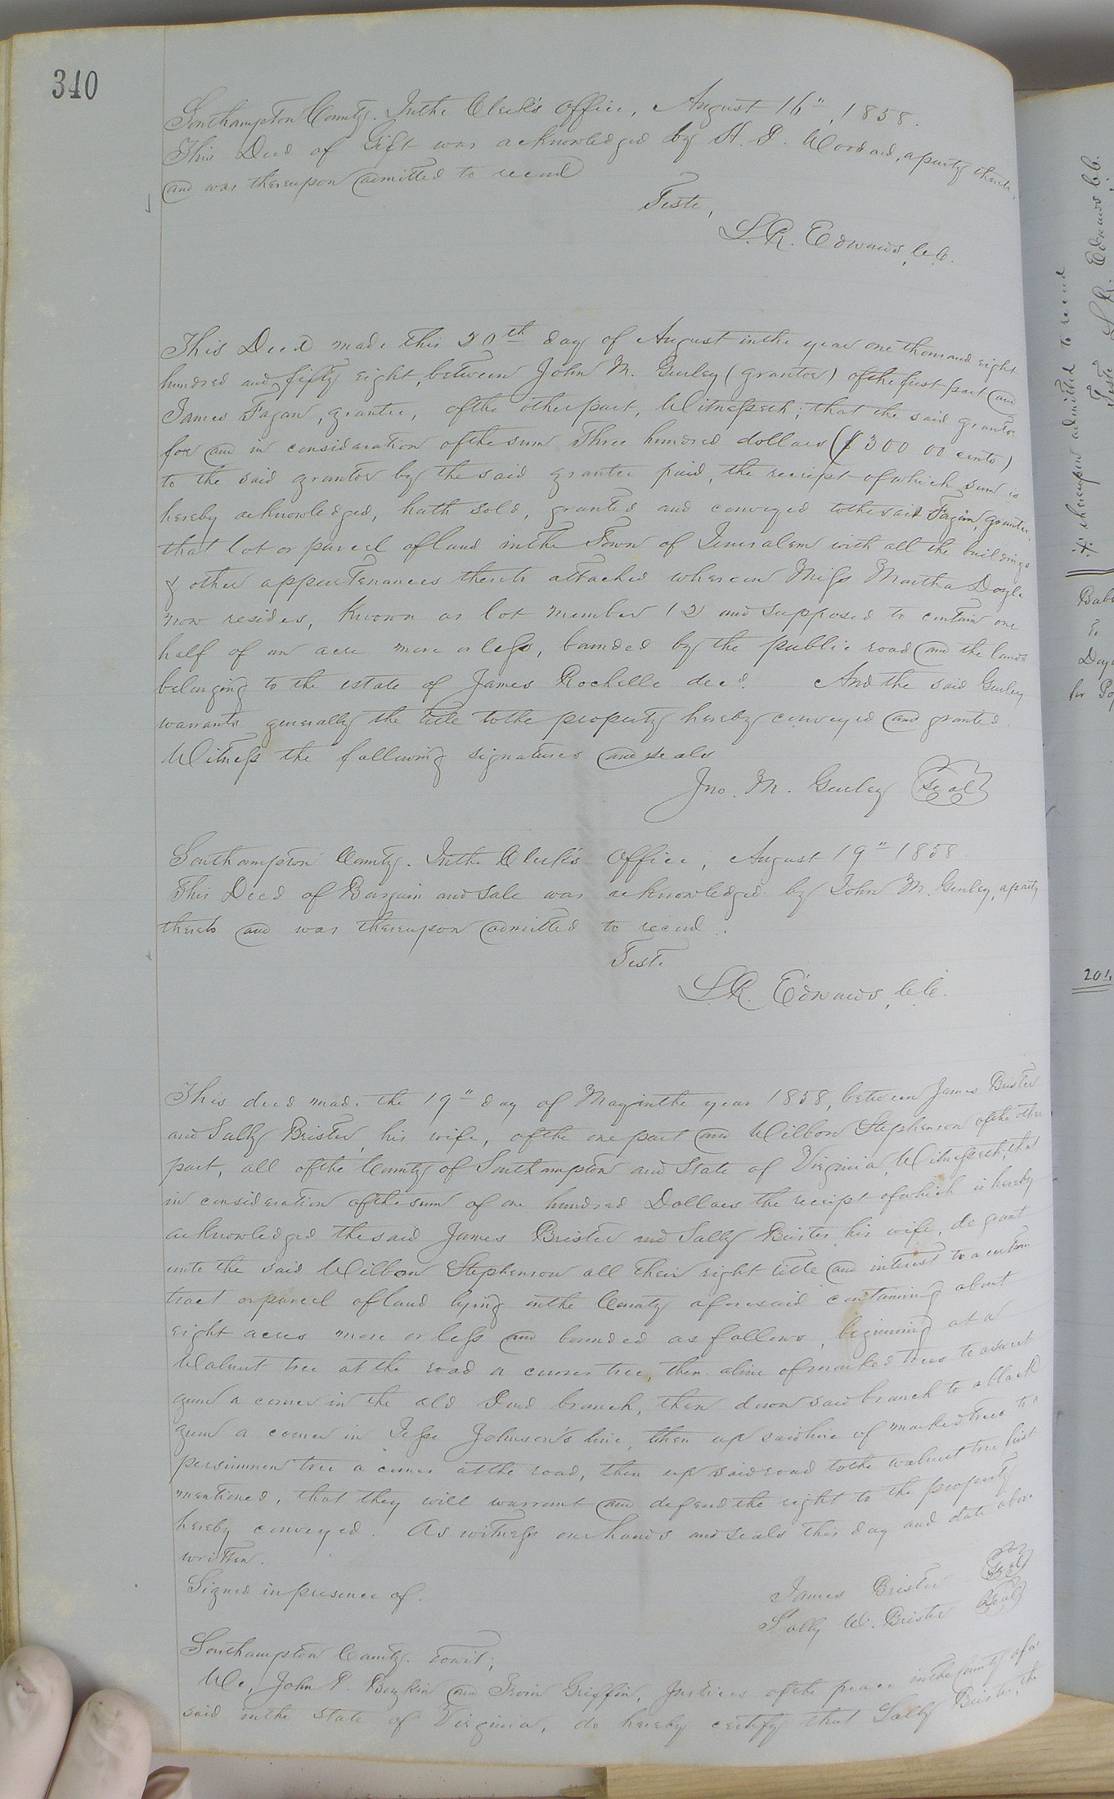 340
Southampton County. In the Clerk's Office, August 16", 1858.
This Deed of Gift was acknowledged by H. P. Woodard, a party thereto,
and was thereupon admitted to record
Teste,
L. R. Edwards, C.C.
This Deed made this 20th day of August in the year one thousand eight
hundred and fifty eight, between John M. Gurley (grantor) of the first part and
James Fagan, grantee, of the other part, Witnesseth; that the said grantor
for and in consideration of the sum Three hundred dollars ($300 00 cents)
to the said grantor by the said grantee paid, the receipt of which sum is
hereby acknowledged, hath sold, granted and conveyed to the said Fagan, grantee,
that lot or parcel of land in the Town of Jerusalem with all the buildings
& other appurtenances thereto attached wherein Miss Martha Doyle
now resides, known as lot number 12 and supposed to contain one
half of an acre more or less, bounded by the public road and the lands
belonging to the estate of James Rochelle decd. And the said Gurley
warrants generally the title to the property hereby conveyed and granted.
Witness the following signatures and seals
Jno. M. Gurley Seal
Southampton County. In the Clerk's Office, August 19" 1858
This Deed of Bargain and Sale was acknowledged by John M. Gurley, a party
thereto and was thereupon admitted to record.
Teste
L. R. Edwards, C.C.
This deed made the 19" day of May in the year 1858, between James Brister
and Sally Brister, his wife, of the one part and Wilbon Stephenson of the other
part, all of the County of Southampton and State of Virginia, Witnesseth, that
in consideration of the sum of one hundred Dollars the receipt of which is hereby
acknowledged the said James Brister and Sally Brister his wife, do grant
unto the said Wilbon Stephenson all their right title and interest to a certain
tract or parcel of land lying in the County aforesaid containing about
eight acres more or less and bounded as follows, beginning at a
Walnut tree at the road a corner tree, then a line of marked trees to a sweet
gum a corner in the old branch, then down said branch to a black
gum a corner in Jesse Johnson's line, then up said line of marked trees to a
persimmon tree a corner at the road, then up said road to the walnut tree first
mentioned, that they will warrant and defend the right to the property
hereby conveyed. As witness our hands and seals this day and date above
written.
Signed in presence of.
James Brister Seal
Sally W. Brister Seal
Southampton County. towit;
We, John P. Boykin and Irvin Griffin, Justices of the peace in the County afore
said in the State of Virginia, do hereby certify that Sally Brister, the
thereupon admitted to record
Teste L. R. Edwards C.C.